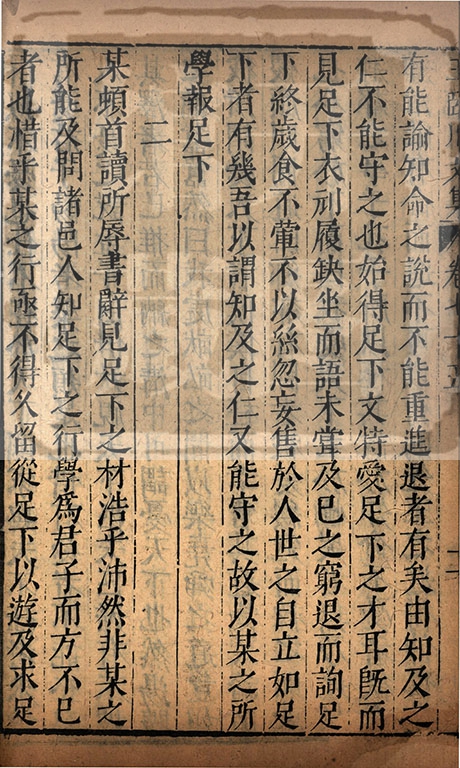 王臨川文集 卷七十五
有能論知命之說而不能重進退者有矣由知及之
仁不能守之也始得足下文特愛足下之才耳既而
見足下衣刓履缺坐而語未嘗及已之窮退而詢足
下終歲食不葷不以絲忽妄售於人世之自立如足
下者有幾吾以謂知及之仁又能守之故以某之所
學報足下
二
某頓首讀所辱書辭見足下之材浩乎沛然非某之
所能及問諸邑人知足下之行學爲君子而方不已
者也惜乎某之行亟不得久留從足下以遊及求足